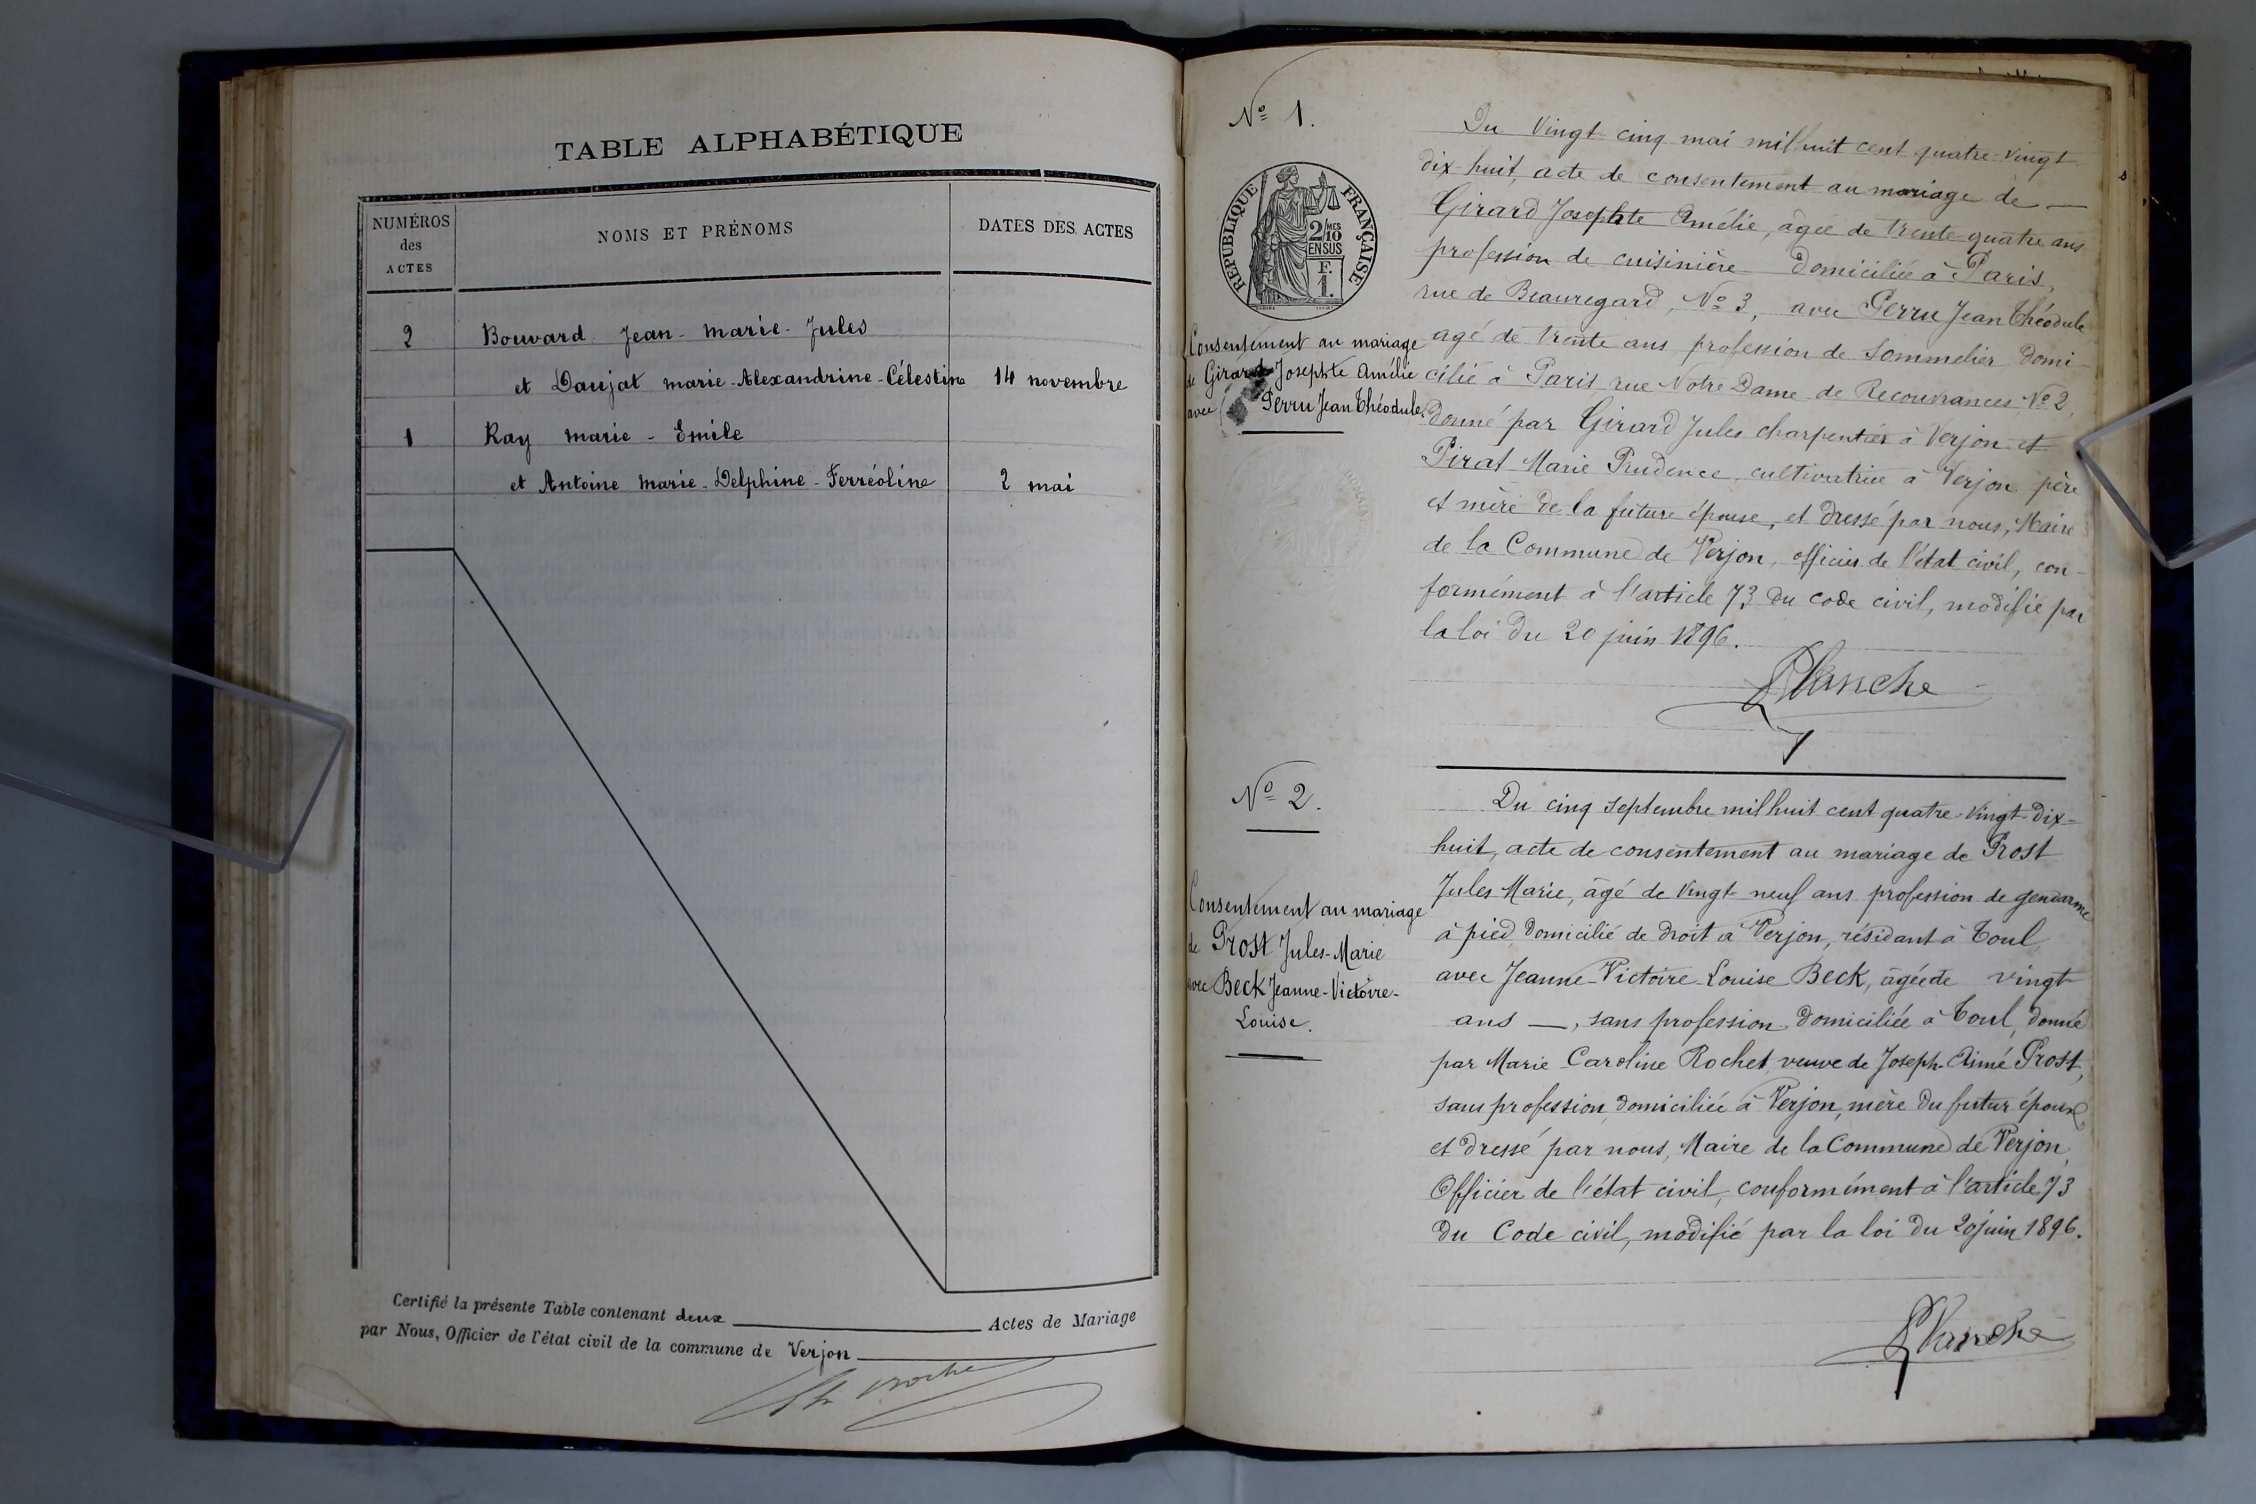 TABLE ALPHABÉTIQUE
NUMÉROS
des
ACTES
NOMS ET PRÉNOMS
DATES DES ACTES
2 Bouvard Jean-Marie-Jules
et Daujat Marie-Alexandrine-Célestine 14 novembre
1 Ray Marie-Emile
et Antoine Marie-Delphine-Ferréoline 2 mai
Certifié la présente Table contenant deux Actes de Mariage
par Nous, Officier de l'état civil de la commune de Verjon
Nº 1.
RÉPUBLIQUE FRANÇAISE
2/10MES
EN SUS
F.
1.
Consentement au mariage
de Girard Josephte Amélie
avec Perru Jean Théodule.
Du Vingt-cinq mai mil huit cent quatre-vingt
dix-huit, acte de consentement au mariage de —
Girard Josephte Amélie, agée de trente-quatre ans
profession de cuisinière domiciliée à Paris,
rue de Beauregard, Nº 3, avec Perru Jean Théodule
agé de trente ans profession de Sommelier domi-
cilié à Paris rue Notre Dame de Recouvrances Nº 2,
donné par Girard Jules charpentier à Verjon et
Pirat Marie Prudence, cultivatrice à Verjon père
et mère de la future épouse, et dressé par nous, Maire
de la Commune de Verjon, officier de l'état civil, con-
formément à l'article 73 du code civil, modifié par
la loi du 20 juin 1896.
Planche
Nº 2.
Consentement au mariage
de Prost Jules-Marie
avec Beck Jeanne-Victoire-
Louise.
Du cinq septembre mil huit cent quatre-vingt-dix-
huit, acte de consentement au mariage de Prost
Jules Marie, âgé de vingt-neuf ans profession de gendarme
à pied domicilié de droit à Verjon, résidant à Toul,
avec Jeanne-Victoire-Louise Beck, âgée de vingt
ans —, sans profession domiciliée à Toul, donné
par Marie Caroline Rochet veuve de Joseph-Aimé Prost,
sans profession domiciliée à Verjon, mère du futur époux,
et dressé par nous, Maire de la Commune de Verjon,
Officier de l'état civil, conformément à l'article 73
du Code civil, modifié par la loi du 20 juin 1896.
Planche